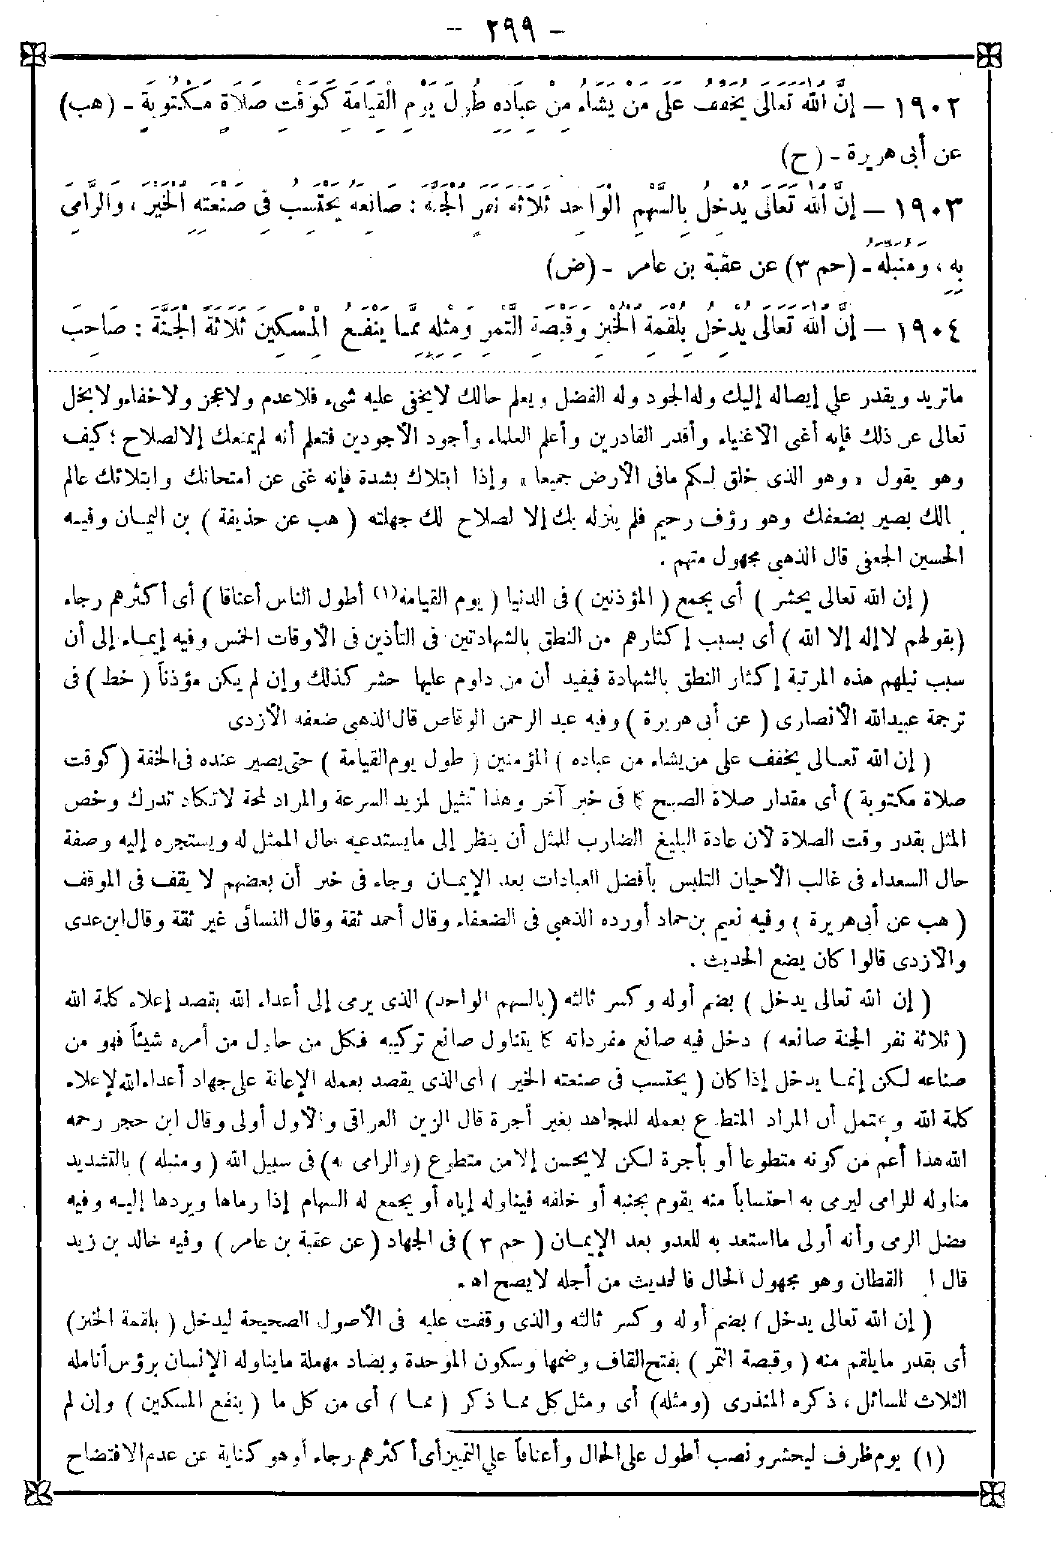 - ٢٩٩ -
١٩٠٢ — إِنَّ اللّٰهَ تَعَالَى يُخَفِّفُ عَلَى مَنْ يَشَاءُ مِنْ عِبَادِهِ طُولَ يَوْمِ الْقِيَامَةِ كَوَقْتِ صَلَاةٍ مَكْتُوبَةٍ - (هب)
عن أبى هريرة - (ح)
١٩٠٣ — إِنَّ اللّٰهَ تَعَالَى يُدْخِلُ بِالسَّهْمِ الْوَاحِدِ ثَلَاثَةَ نَفَرٍ الْجَنَّةَ : صَانِعَهُ يَحْتَسِبُ فِى صَنْعَتِهِ الْخَيْرَ ، وَالرَّامِىَ
بِهِ ، وَمُنَبِّلَهُ - (حم ٣) عن عقبة بن عامر - (ض)
١٩٠٤ — إِنَّ اللّٰهَ تَعَالَى يُدْخِلُ بِلُقْمَةِ الْخُبْزِ وَقَبْصَةِ التَّمْرِ وَمِثْلِهِ مِمَّا يَنْفَعُ الْمِسْكِينَ ثَلَاثَةً الْجَنَّةَ : صَاحِبَ
ماتريد ويقدر على إيصاله إليك وله الجود وله الفضل ويعلم حالك لايخفى عليه شىء فلاعدم ولاعجز ولاخفاء ولابخل
تعالى عن ذلك فإنه أغنى الاغنياء وأقدر القادرين وأعلم العلماء وأجود الأجودين فتعلم أنه لم يمنعك إلا لصلاح ؛ كيف
وهو يقول « وهو الذى خلق لكم مافى الأرض جميعا » وإذا ابتلاك بشدة فإنه غنى عن امتحانك وابتلائك عالم
الك بصير بضعفك وهو رؤف رحيم فلم ينزله بك إلا لصلاح لك جهلته ( هب عن حذيفة ) بن اليمان وفيه
الحسين الجعفى قال الذهبى مجهول متهم .
( إن الله تعالى يحشر ) أى يجمع ( المؤذنين ) فى الدنيا ( يوم القيامة (١) أطول الناس أعناقا ) أى أكثرهم رجاء
(بقولهم لاإله إلا الله ) أى بسبب إكثارهم من النطق بالشهادتين فى التأذين فى الأوقات الخمس وفيه إيماء إلى أن
سبب نيلهم هذه المرتبة إكثار النطق بالشهادة فيفيد أن من داوم عليها حشر كذلك وإن لم يكن مؤذناً ( خط ) فى
ترجمة عبيدالله الأنصارى ( عن أبى هريرة ) وفيه عبد الرحمن الوقاص قال الذهبى ضعفه الأزدى
( إن الله تعالى يخفف على من يشاء من عباده ) المؤمنين ( طول يوم القيامة ) حتى يصير عنده فى الخفة ( كوقت
صلاة مكتوبة ) أى مقدار صلاة الصبح كما فى خبر آخر وهذا تمثيل لمزيد السرعة والمراد لمحة لاتكاد تدرك وخص
المثل بقدر وقت الصلاة لأن عادة البليغ الضارب للمثل أن ينظر إلى مايستدعيه حال الممثل له ويستجره إليه وصفة
حال السعداء فى غالب الأحيان التلبس بأفضل العبادات بعد الإيمان وجاء فى خبر أن بعضهم لا يقف فى الموقف
( هب عن أبى هريرة ) وفيه نعيم بن حماد أورده الذهبى فى الضعفاء وقال أحمد ثقة وقال النسائى غير ثقة وقال ابن عدى
والأزدى قالوا كان يضع الحديث .
( إن الله تعالى يدخل ) بضم أوله وكسر ثالثه (بالسهم الواحد) الذى يرمى إلى أعداء الله بقصد إعلاء كلمة الله
( ثلاثة نفر الجنة صانعه ) دخل فيه صانع مفرداته كما يتناول صانع تركيبه فكل من حاول من أمره شيئاً فهو من
صناعه لكن إنما يدخل إذا كان ( يحتسب فى صنعته الخير ) أى الذى يقصد بعمله الإعانة على جهاد أعداء الله لإعلاء
كلمة الله ويحتمل أن المراد المتطوع بعمله للمجاهد بغير أجرة قال الزين العراقى والأول أولى وقال ابن حجر رحمه
الله هذا أعم من كونه متطوعا أو بأجرة لكن لايحسن إلا من متطوع (والرامى به) فى سبيل الله ( ومنبله ) بالتشديد
مناوله للرامى ليرمى به احتساباً منه يقوم بجنبه أو خلفه فيناوله إياه أو يجمع له السهام إذا رماها ويردها إليه وفيه
فضل الرمى وأنه أولى مااستعد به للعدو بعد الإيمان ( حم ٣ ) فى الجهاد ( عن عقبة بن عامر ) وفيه خالد بن زيد
قال ا القطان وهو مجهول الحال فالحديث من أجله لايصح اهـ .
( إن الله تعالى يدخل ) بضم أوله وكسر ثالثه والذى وقفت عليه فى الأصول الصحيحة ليدخل ( بلقمة الخبز)
أى بقدر مايلقم منه ( وقبصة التمر ) بفتح القاف وضمها وسكون الموحدة وبصاد مهملة مايناوله الإنسان برؤس أنامله
الثلاث للسائل ، ذكره المنذرى (ومثله) أى ومثل كل مما ذكر ( مما ) أى من كل ما ( ينفع المسكين ) وإن لم
(١) يوم ظرف ليحشر ونصب أطول على الحال وأعناقاً على التمييز أى أكثرهم رجاء أو هو كناية عن عدم الافتضاح